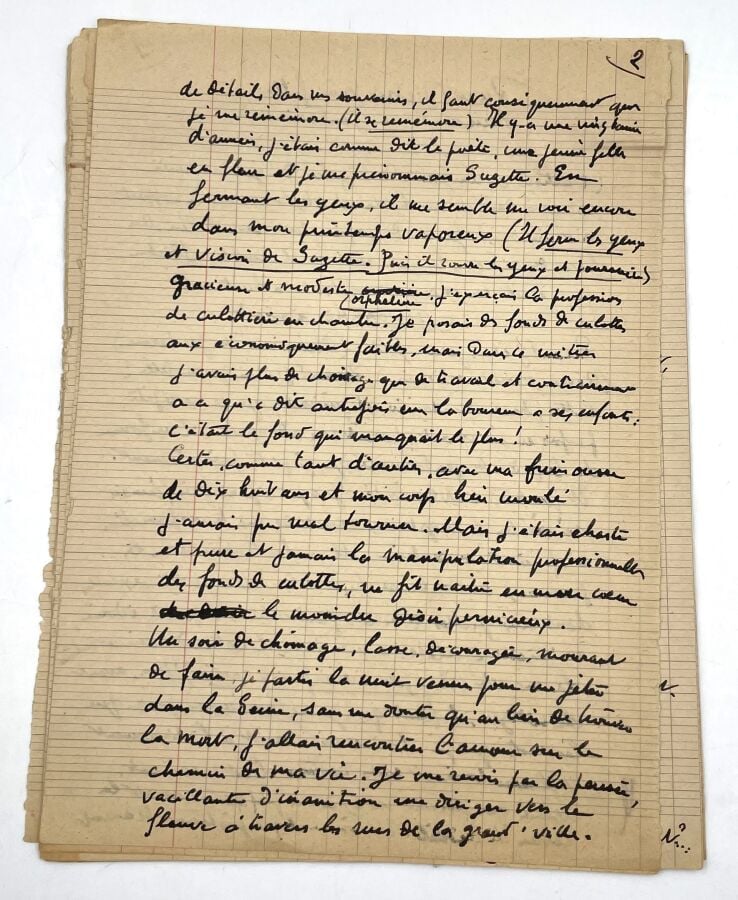 2
de détails dans mes souvenirs, il faut conséquemment que
je me remémore. (il se remémore) Il y-a une vingtaine
d'années, j'étais comme dit le poète, une jeune fille
en fleur et je me prénommais Suzette. En
fermant les yeux, il me semble me voir encore
dans mon printemps vaporeux (Il ferme les yeux
et vision de Suzette. Puis il rouvre les yeux et poursuit)
gracieuse et modeste orpheline, j'exerçais la profession
de culottière en chambre. Je posais des fonds de culottes
aux économiquement faibles, mais dans ce métier
j'avais plus de chômage que de travail et contrairement
a ce qu'a dit autrefois un laboureur a ses enfants:
c'était le fond qui manquait le plus!
Certes, comme tant d'autres, avec ma frimousse
de dix huit ans et mon corps bien moulé
j'aurais pu mal tourner. Mais j'étais chaste
et pure et jamais la manipulation professionnelle
des fonds de culottes, ne fit naître en mon cœur
le moindre désir pernicieux.
Un soir de chômage, lasse, découragée, mourant
de faim, je partis la nuit venue pour me jeter
dans la Seine, sans me douter qu'au lieu de trouver
la mort, j'allais rencontrer l'amour sur le
chemin de ma vie. Je me revois par la pensée,
vacillante d'inanition me diriger vers le
fleuve à travers les rues de la grand' ville.